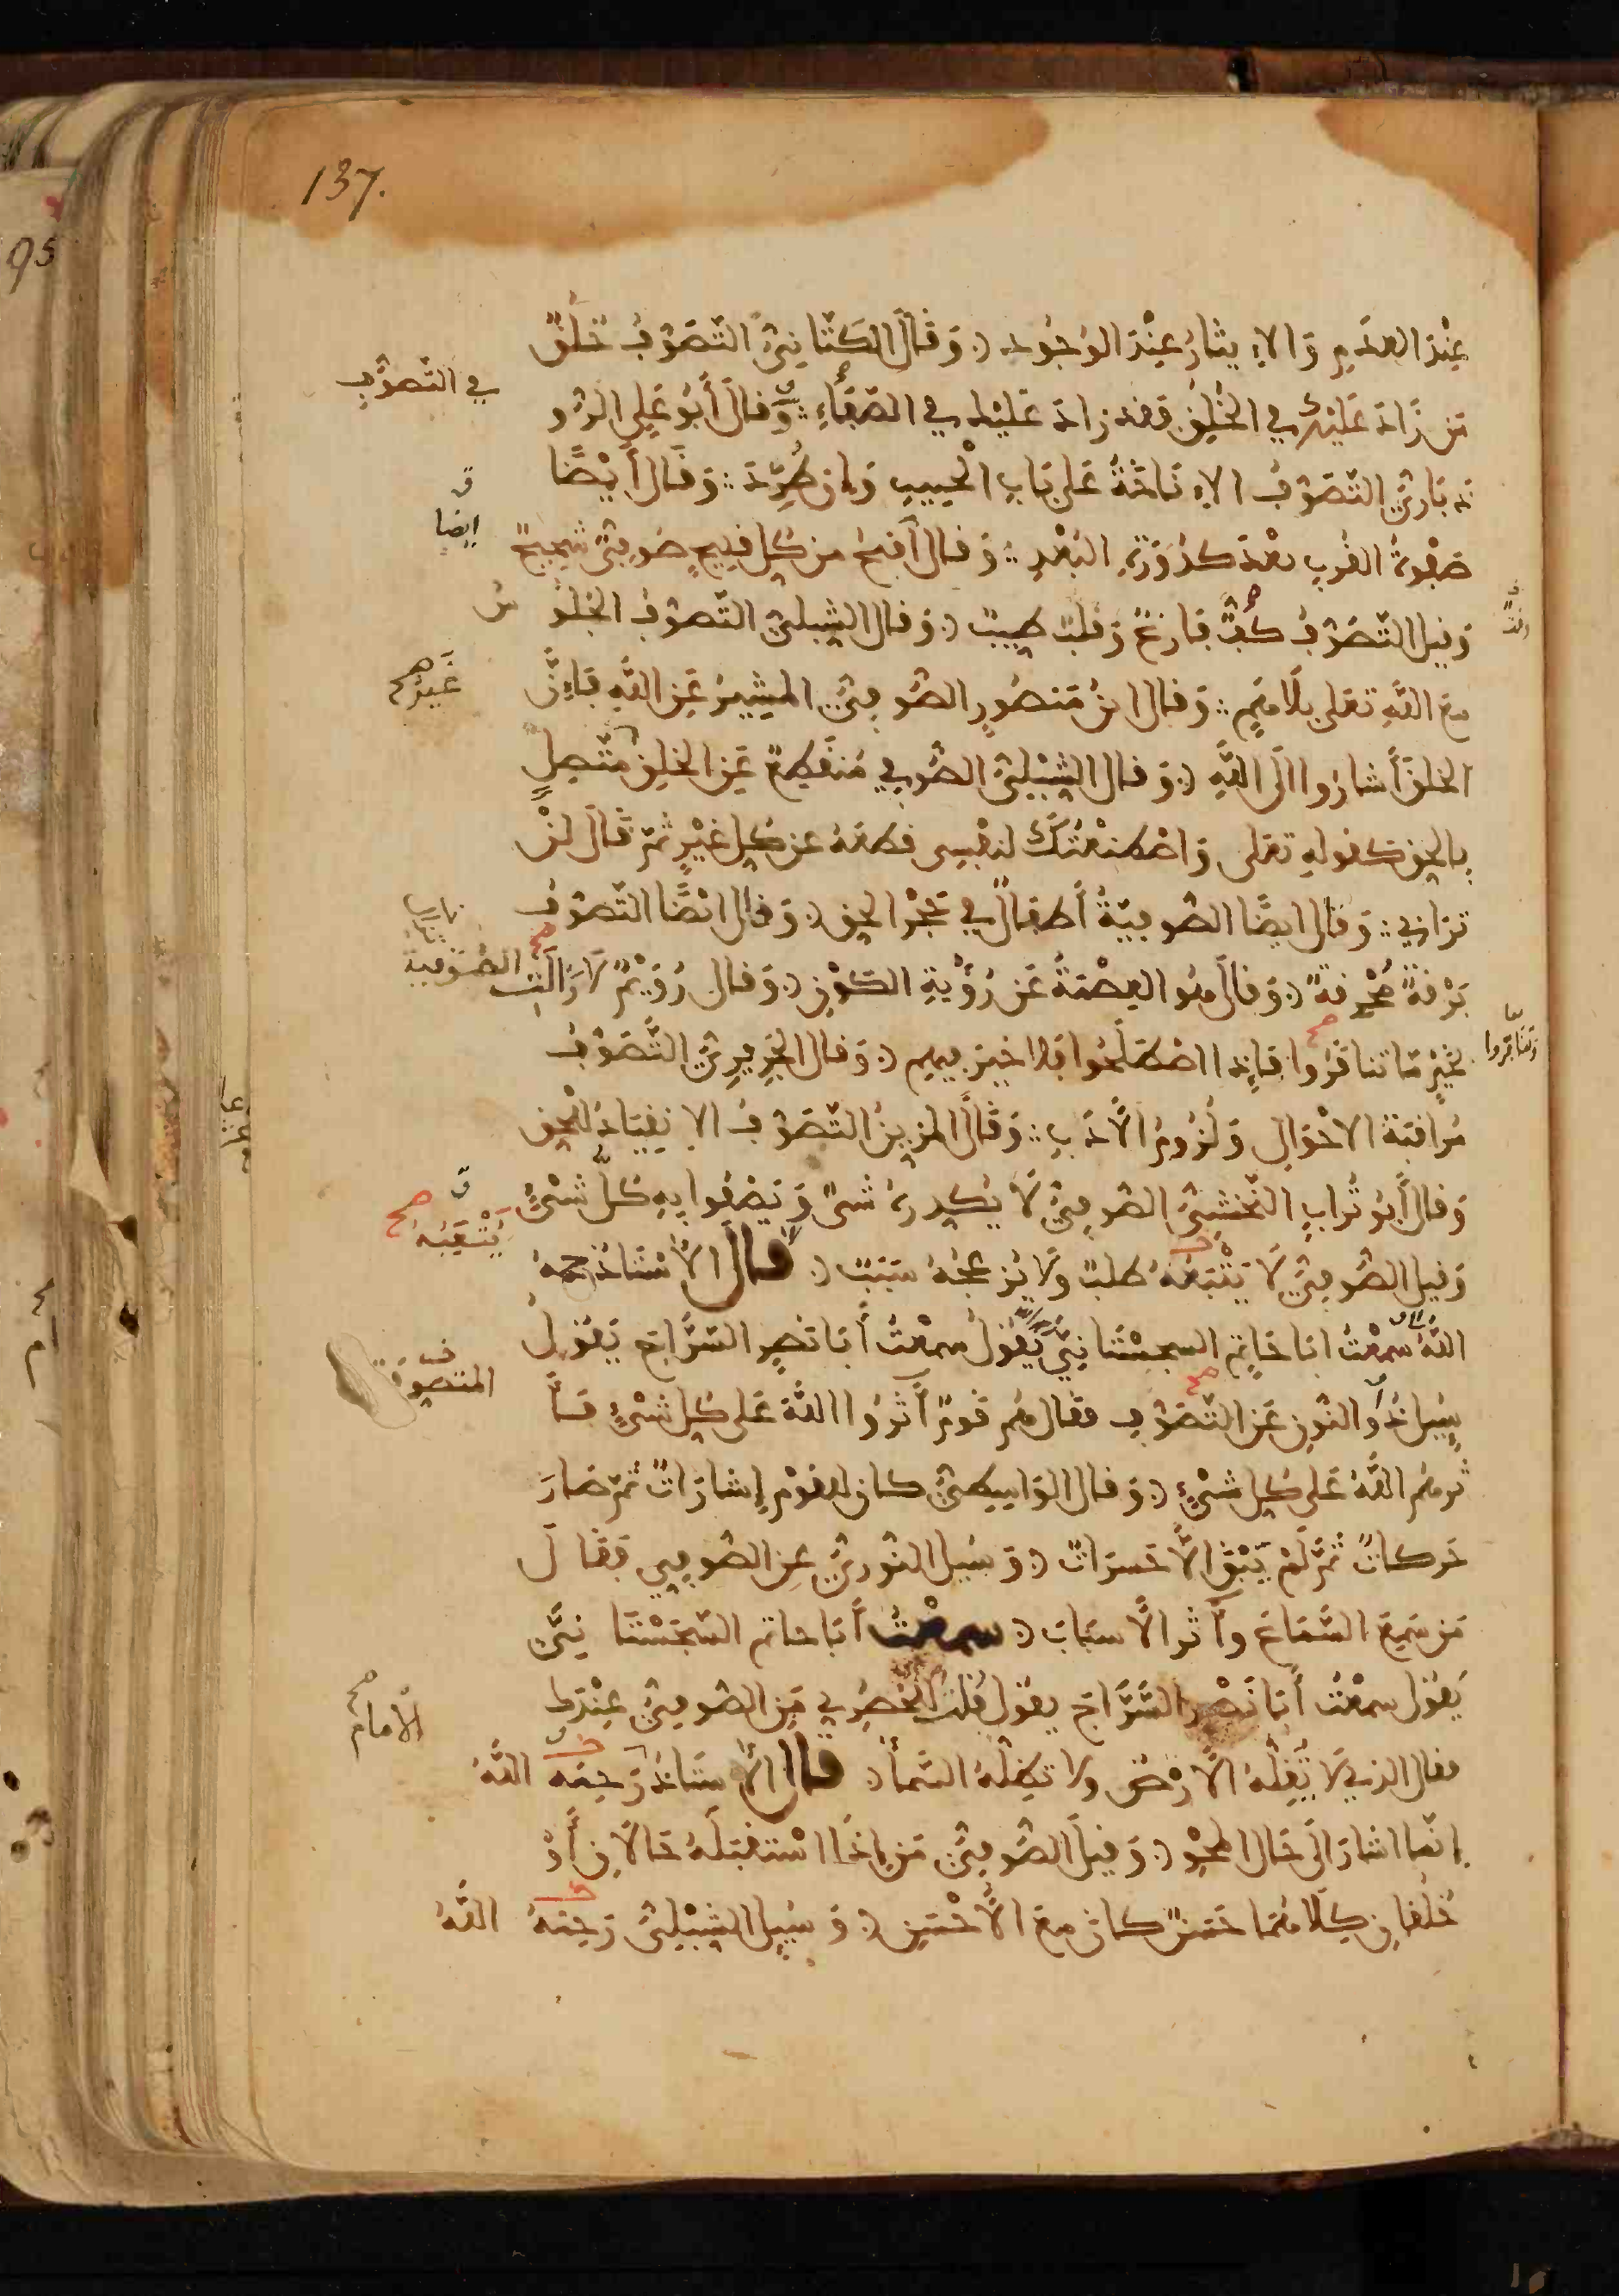 137.
95
عِنْدَ العَدَمِ وَالاِيثَارُ عِنْدَ الوُجُودِ وَقَالَ الكَتَّانِيُّ التَّصَوُّفُ خُلُقٌ
في التَّصَوُّفِ
مَن زَادَ عَلَيْكَ فِي الخُلُقِ فقد زادَ عَلَيْك في الصَّفَاءِ وَقَالَ أَبُو عَلِي الرُّو
ذبَارِيُّ التَّصَوُّفُ الاِنَاخَةُ عَلَى بَابِ الْحَبِيبِ وَإِن طُرِدَ وَقَالَ أَيْضًا
ايضا
صَفْوَةُ القُربِ بَعْدَ كُدُورَةِ البُعْدِ وَقَالَ أَقبَحُ من كلِ قبِيحٍ صُوفِيٌّ شَحِيحٌ
وَقيل التَّصَوُّفُ كَفٌّ فَارِغٌ وَقَلْبٌ طَيِّبٌ وَقَالَ الشِّبْلِيُّ التَّصَوُّفُ الجُلُوسُ
مَعَ اللَّهِ تَعَلَى بِلَا هَمٍّ وَقَالَ ابنُ مَنصُورٍ الصُّوفِيُّ المُشِيرُ عَنِ اللَّهِ فَإِنَّ
غَيْرُه صح
الخلقَ أَشَارُوا الَى اللَّهِ وَقَالَ الشِّبْلِيُّ الصُّوفِي مُنقَطِعٌ عَنِ الخلقِ مُتَّصِلٌ
بِالحقِ كقولهِ تَعَلى وَاصْطَنَعْتُكَ لنَفْسِي قطَعَهُ عن كلِ غَيْرٍ ثمَّ قَالَ لَنْ
تَرَانِي وَقَالَ ايضًا الصُّوفِيَّةُ أَطفَالٌ فِي حَجْرِ الحقِ وَقَالَ ايْضًا التَّصَوُّفُ
بَرْقَةٌ مُحْرِقَةٌ وَقَالَ هُوَ العِصْمَةُ عَن رُؤْيَةِ الكَوْنِ وَقَالَ رُوَيْمٌ لَا زَالَتِ
الصُّوفِيَة
بخَيْرٍ مَا تنافَرُوا فَإِذا اصْطَلَحُوا فلا خيرَ فِيهِم وَقَالَ الجُرَيرِيُّ التَّصَوُّفُ
مُرَاقَبَةُ الاحْوَالِ وَلُزُومُ الأَدَبِ وَقَالَ المزينُ التَّصَوُّفُ الانقِيَادُ لِلْحَقِ
وَقَالَ أَبُو تُرَابٍ النَّخْشَبِيُّ الصُّوفِيُّ لَا يُكَدِّرُهُ شَىْءٌ وَيَصْفُوا بِهِ كُلُّ شَىْءٍ
يُتْعِبُهُ صح
وَقيل الصُّوفِيُّ لَا يُتْعِبُهُ طلبٌ ولَا يُزْعِجُهُ سَبَبٌ قَالَ الأُسْتَاذُ رحمهُ
اللَّهُ سَمِعْتُ ابا حَاتِم السِّجِسْتَانِيَّ يَقُولُ سَمِعْتُ أَبَا نَصرٍ السَّرَّاجَ يَقُولُ
المتصوفة
سُئِلَ ذُوا النُّونِ عَنِ التَّصَوُّفِ فقال هُم قَومٌ أَثَرُوا اللَّهَ عَلى كلِ شَىْءٍ فَأ
ثرهُم اللَّهُ عَلى كلِ شَىْءٍ وَقَالَ الوَاسِطِيُّ كان لِلقَوْمِ إِشَارَاتٌ ثمَّ صَارَ
حَرَكَاتٌ ثُمَّ لَمْ يَبْقَ الَّا حَسرَاتٌ وَسُئِلَ النُّورِيُّ عَنِ الصُّوفِي فَقَالَ
مَن سَمِعَ السَّمَاعَ وآثر الأَسبَابَ سمعْتُ أَبَا حاتم السَّجَسْتَانِيَّ
يَقُول سمعْتُ أَبَا نَصْر السَّرَّاجَ يقول قُلْتُ لِلحُصْرِي مَنِ الصُّوفِيُّ عِنْدَك
الأمام صح
فقال الذي لَا تُقِلُّهُ الأَرْضُ ولا تُظِلُّهُ السَّمَاءُ قال الأُستَاذُ رَحِمَهُ اللَّهُ
إنّما اشارَ الَى حَالِ المَحْوِ وَقيلَ الصُّوفِيُّ مَن إِذَا اسْتَقْبَلَهُ حَالَانِ أَوْ
خُلُقَانِ كِلَاهُمَا حَسَنٌ كانَ مَعَ الأَحْسَنِ وَسُئِل الشِّبْلِيُّ رَحِمَهُ اللَّهُ